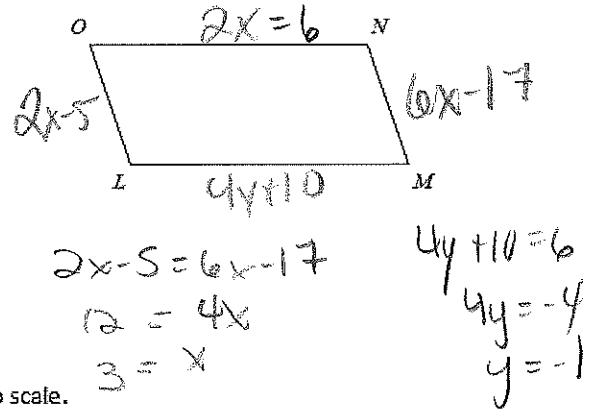 O 2x = 6 N
2x-5 6x-17
L 4y+10 M
2x-5 = 6x-17
12 = 4x
3 = x
4y+10 = 6
4y = -4
y = -1
scale.